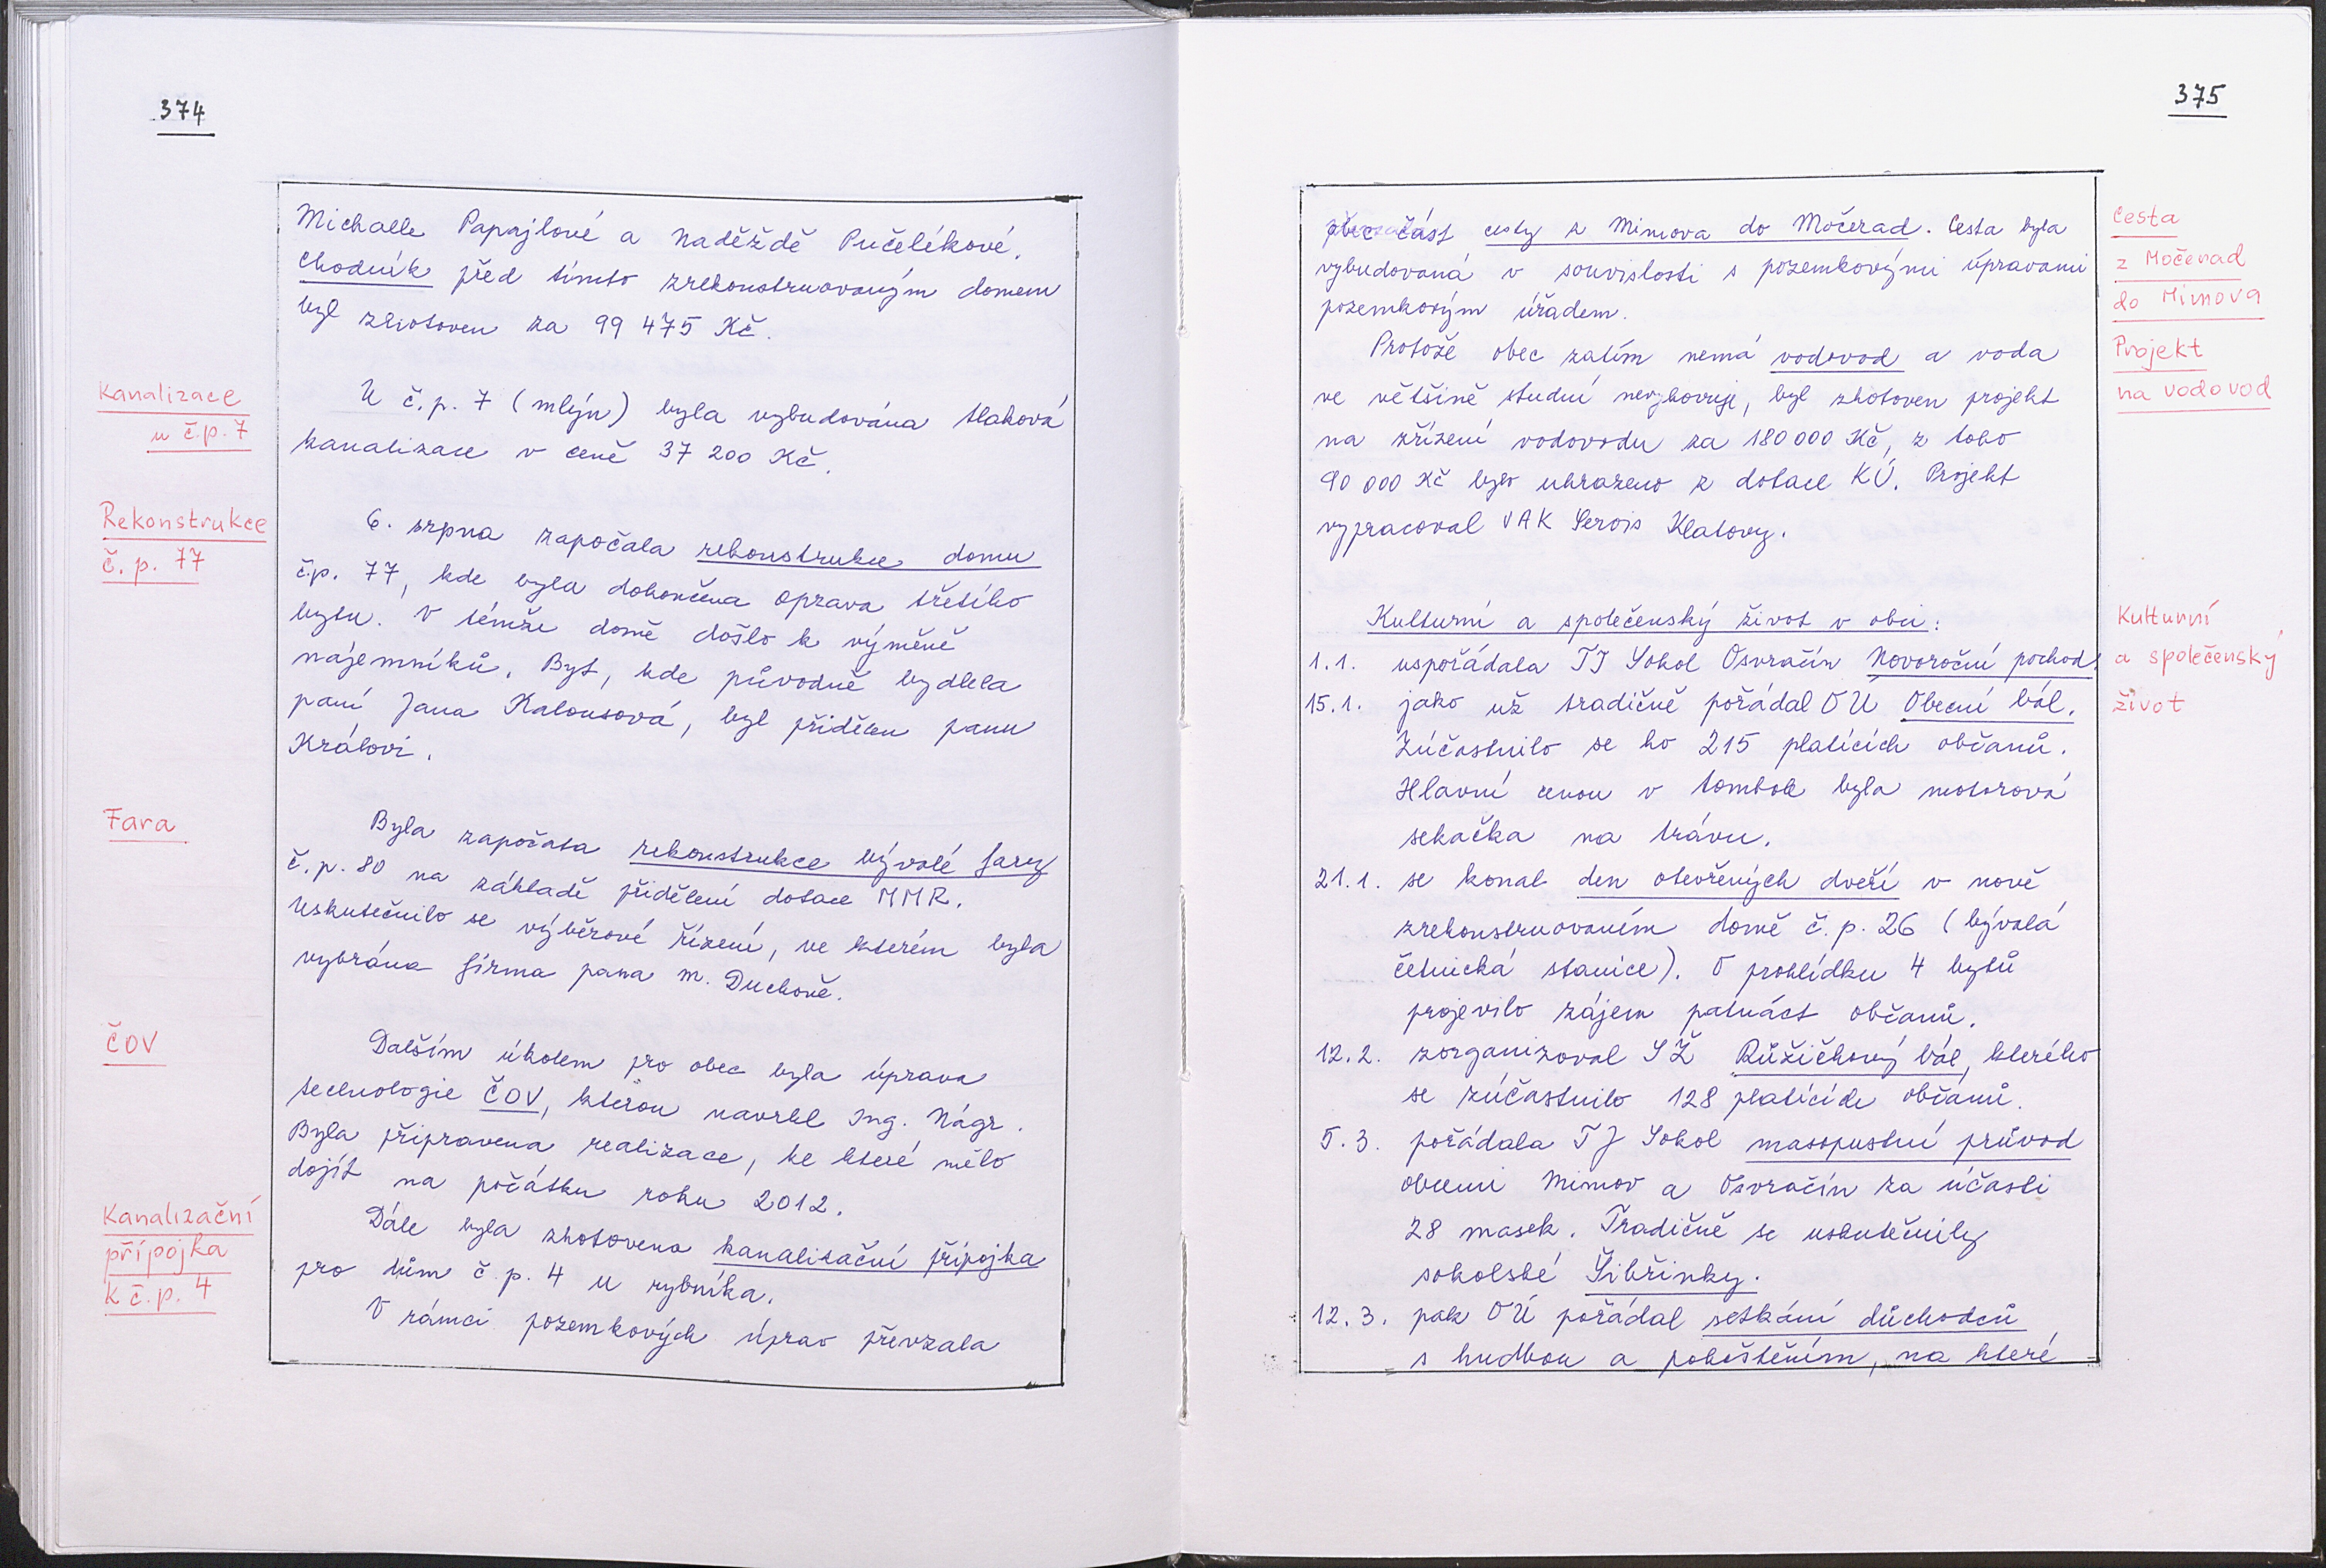 374
Michaele Papajlové a Naděždě Pučelíkové.
Chodník před tímto zrekonstruovaným domem
byl zhotoven za 99 475 Kč.
Kanalizace
u č.p. 7
U č.p. 7 (mlýn) byla vybudována tlaková
kanalizace v ceně 37 200 Kč.
Rekonstrukce
č. p. 77
6. srpna započala rekonstrukce domu
č.p. 77, kde byla dokončena oprava třetího
bytu. V témže domě došlo k výměně
nájemníků. Byt, kde původně bydlela
paní Jana Kalousová, byl přidělen panu
Královi.
Fara
Byla započata rekonstrukce bývalé fary
č.p. 80 na základě přidělení dotace MMR.
Uskutečnilo se výběrové řízení, ve kterém byla
vybrána firma pana M. Duchoně.
ČOV
Dalším úkolem pro obec byla úprava
technologie ČOV, kterou navrhl Ing. Nágr.
Byla připravena realizace, ke které mělo
dojít na počátku roku 2012.
Kanalizační
přípojka
k č.p. 4
Dále byla zhotovena kanalizační přípojka
pro dům č.p. 4 u rybníka.
V rámci pozemkových úprav převzala
375
obec část cesty z Mimova do Močerad. Cesta byla
vybudovaná v souvislosti s pozemkovými úpravami
pozemkovým úřadem.
Cesta
z Močerad
do Mimova
Protože obec zatím nemá vodovod a voda
ve většině studní nevyhovuje, byl zhotoven projekt
na zřízení vodovodu za 180 000 Kč, z toho
90 000 Kč bylo uhrazeno z dotace KÚ. Projekt
vypracoval VAK Servis Klatovy.
Projekt
na vodovod
Kulturní a společenský život v obci:
Kulturní
a společenský
život
1.1. uspořádala TJ Sokol Osvračín Novoroční pochod.
15.1. jako už tradičně pořádal OÚ Obecní bál.
Zúčastnilo se ho 215 platících občanů.
Hlavní cenou v tombole byla motorová
sekačka na trávu.
21.1. se konal den otevřených dveří v nově
zrekonstruovaním domě č.p. 26 (bývalá
četnická stanice). O prohlídku 4 bytů
projevilo zájem patnáct občanů.
12.2. zorganizoval SŽ Růžičkový bál, kterého
se zúčastnilo 128 platících občanů.
5.3. pořádala TJ Sokol masopustní průvod
obcemi Mimov a Osvračín za účasti
28 masek. Tradičně se uskutečnily
sokolské Šibřinky.
12.3. pak OÚ pořádal setkání důchodců
s hudbou a pohoštěním, na které